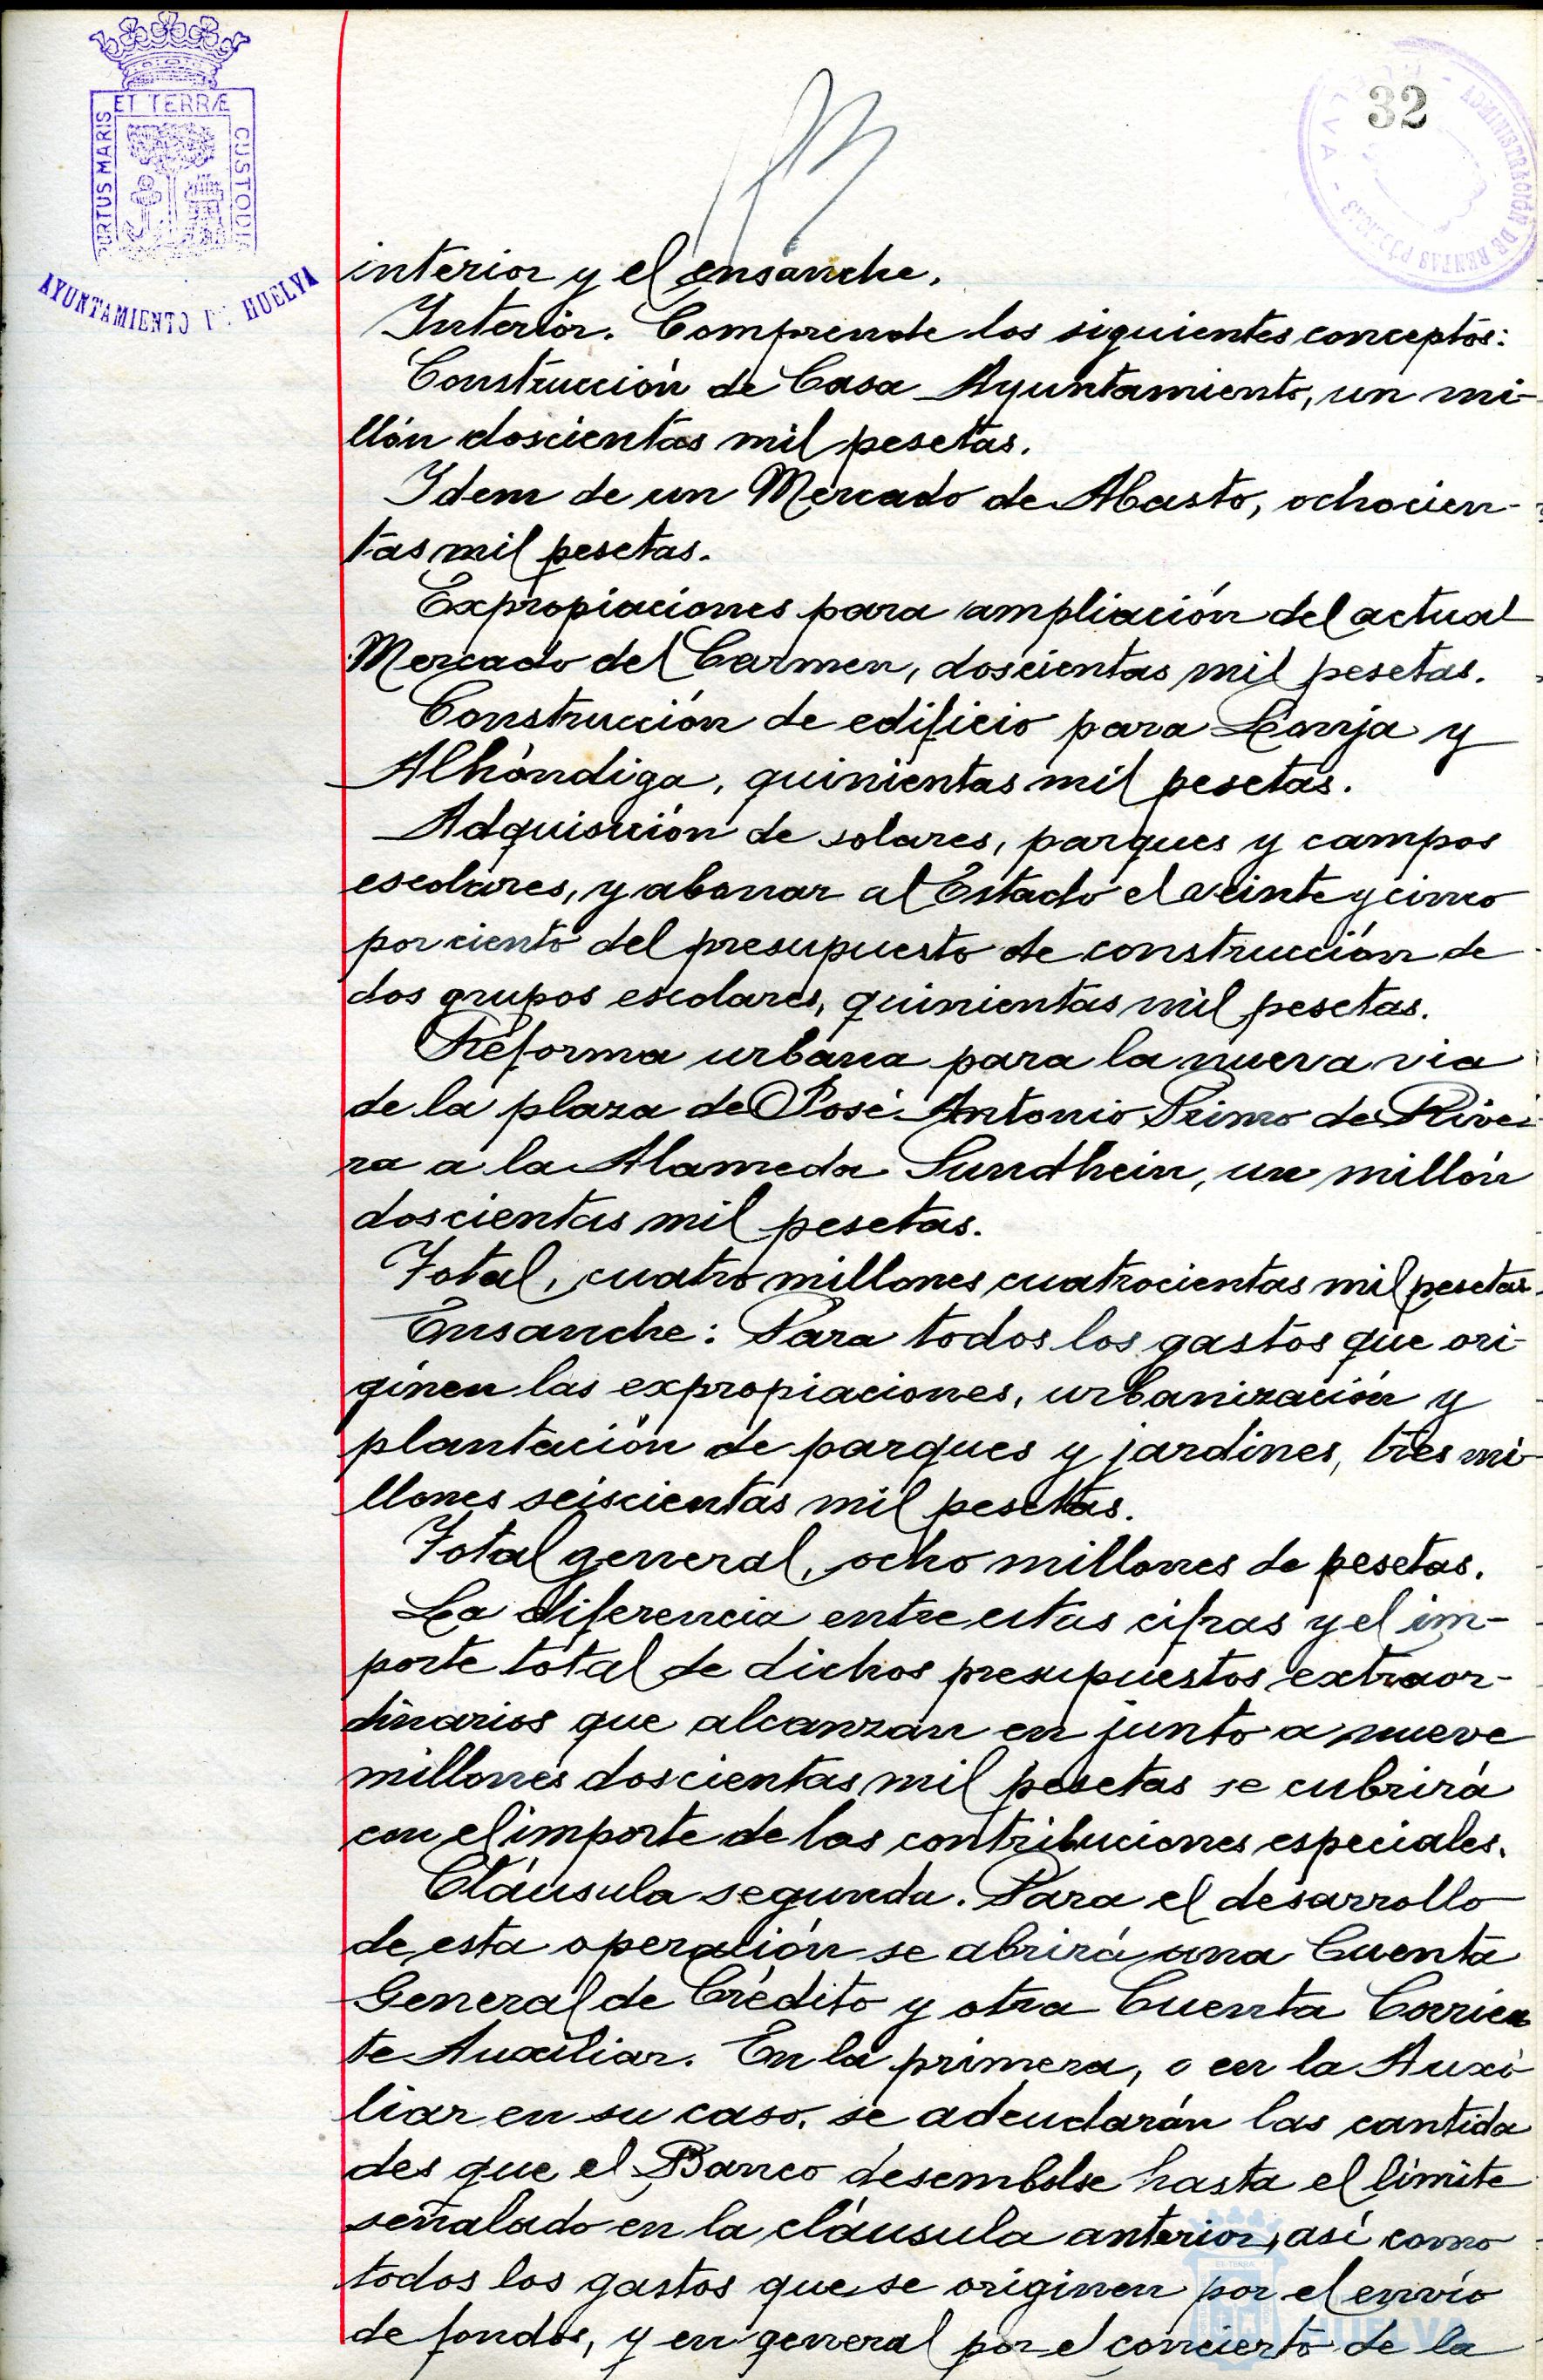 PORTUS MARIS ET TERRÆ CUSTODIA
AYUNTAMIENTO DE HUELVA
32
ADMINISTRACIÓN DE RENTAS PÚBLICAS
interior y el ensanche.
Interior. Comprende los siguientes conceptos:
Construcción de Casa Ayuntamiento, un mi-
llón doscientas mil pesetas.
Idem de un Mercado de Abasto, ochocien-
tas mil pesetas.
Expropiaciones para ampliación del actual
Mercado del Carmen, doscientas mil pesetas.
Construcción de edificio para Lonja y
Alhóndiga, quinientas mil pesetas.
Adquisición de solares, parques y campos
escolares, y abonar al Estado el veinte y cinco
por ciento del presupuesto de construcción de
dos grupos escolares, quinientas mil pesetas.
Reforma urbana para la nueva via
de la plaza de José Antonio Primo de Rive-
ra a la Alameda Sundhein, un millón
doscientas mil pesetas.
Total, cuatro millones cuatrocientas mil pesetas.
Ensanche: Para todos los gastos que ori-
ginen las expropiaciones, urbanización y
plantación de parques y jardines, tres mi-
llones seiscientas mil pesetas.
Total general, ocho millones de pesetas.
La diferencia entre estas cifras y el im-
porte total de dichos presupuestos extraor-
dinarios que alcanzan en junto a nueve
millones doscientas mil pesetas se cubrirá
con el importe de las contribuciones especiales.
Cláusula segunda. Para el desarrollo
de esta operación se abrirá una Cuenta
General de Crédito y otra Cuenta Corrien
te Auxiliar. En la primera, o en la Auxi
liar en su caso, se adeudarán las cantida
des que el Banco desembolse hasta el límite
señalado en la cláusula anterior, así como
todos los gastos que se originen por el envío
de fondos, y en general por el concierto de la
HUELVA